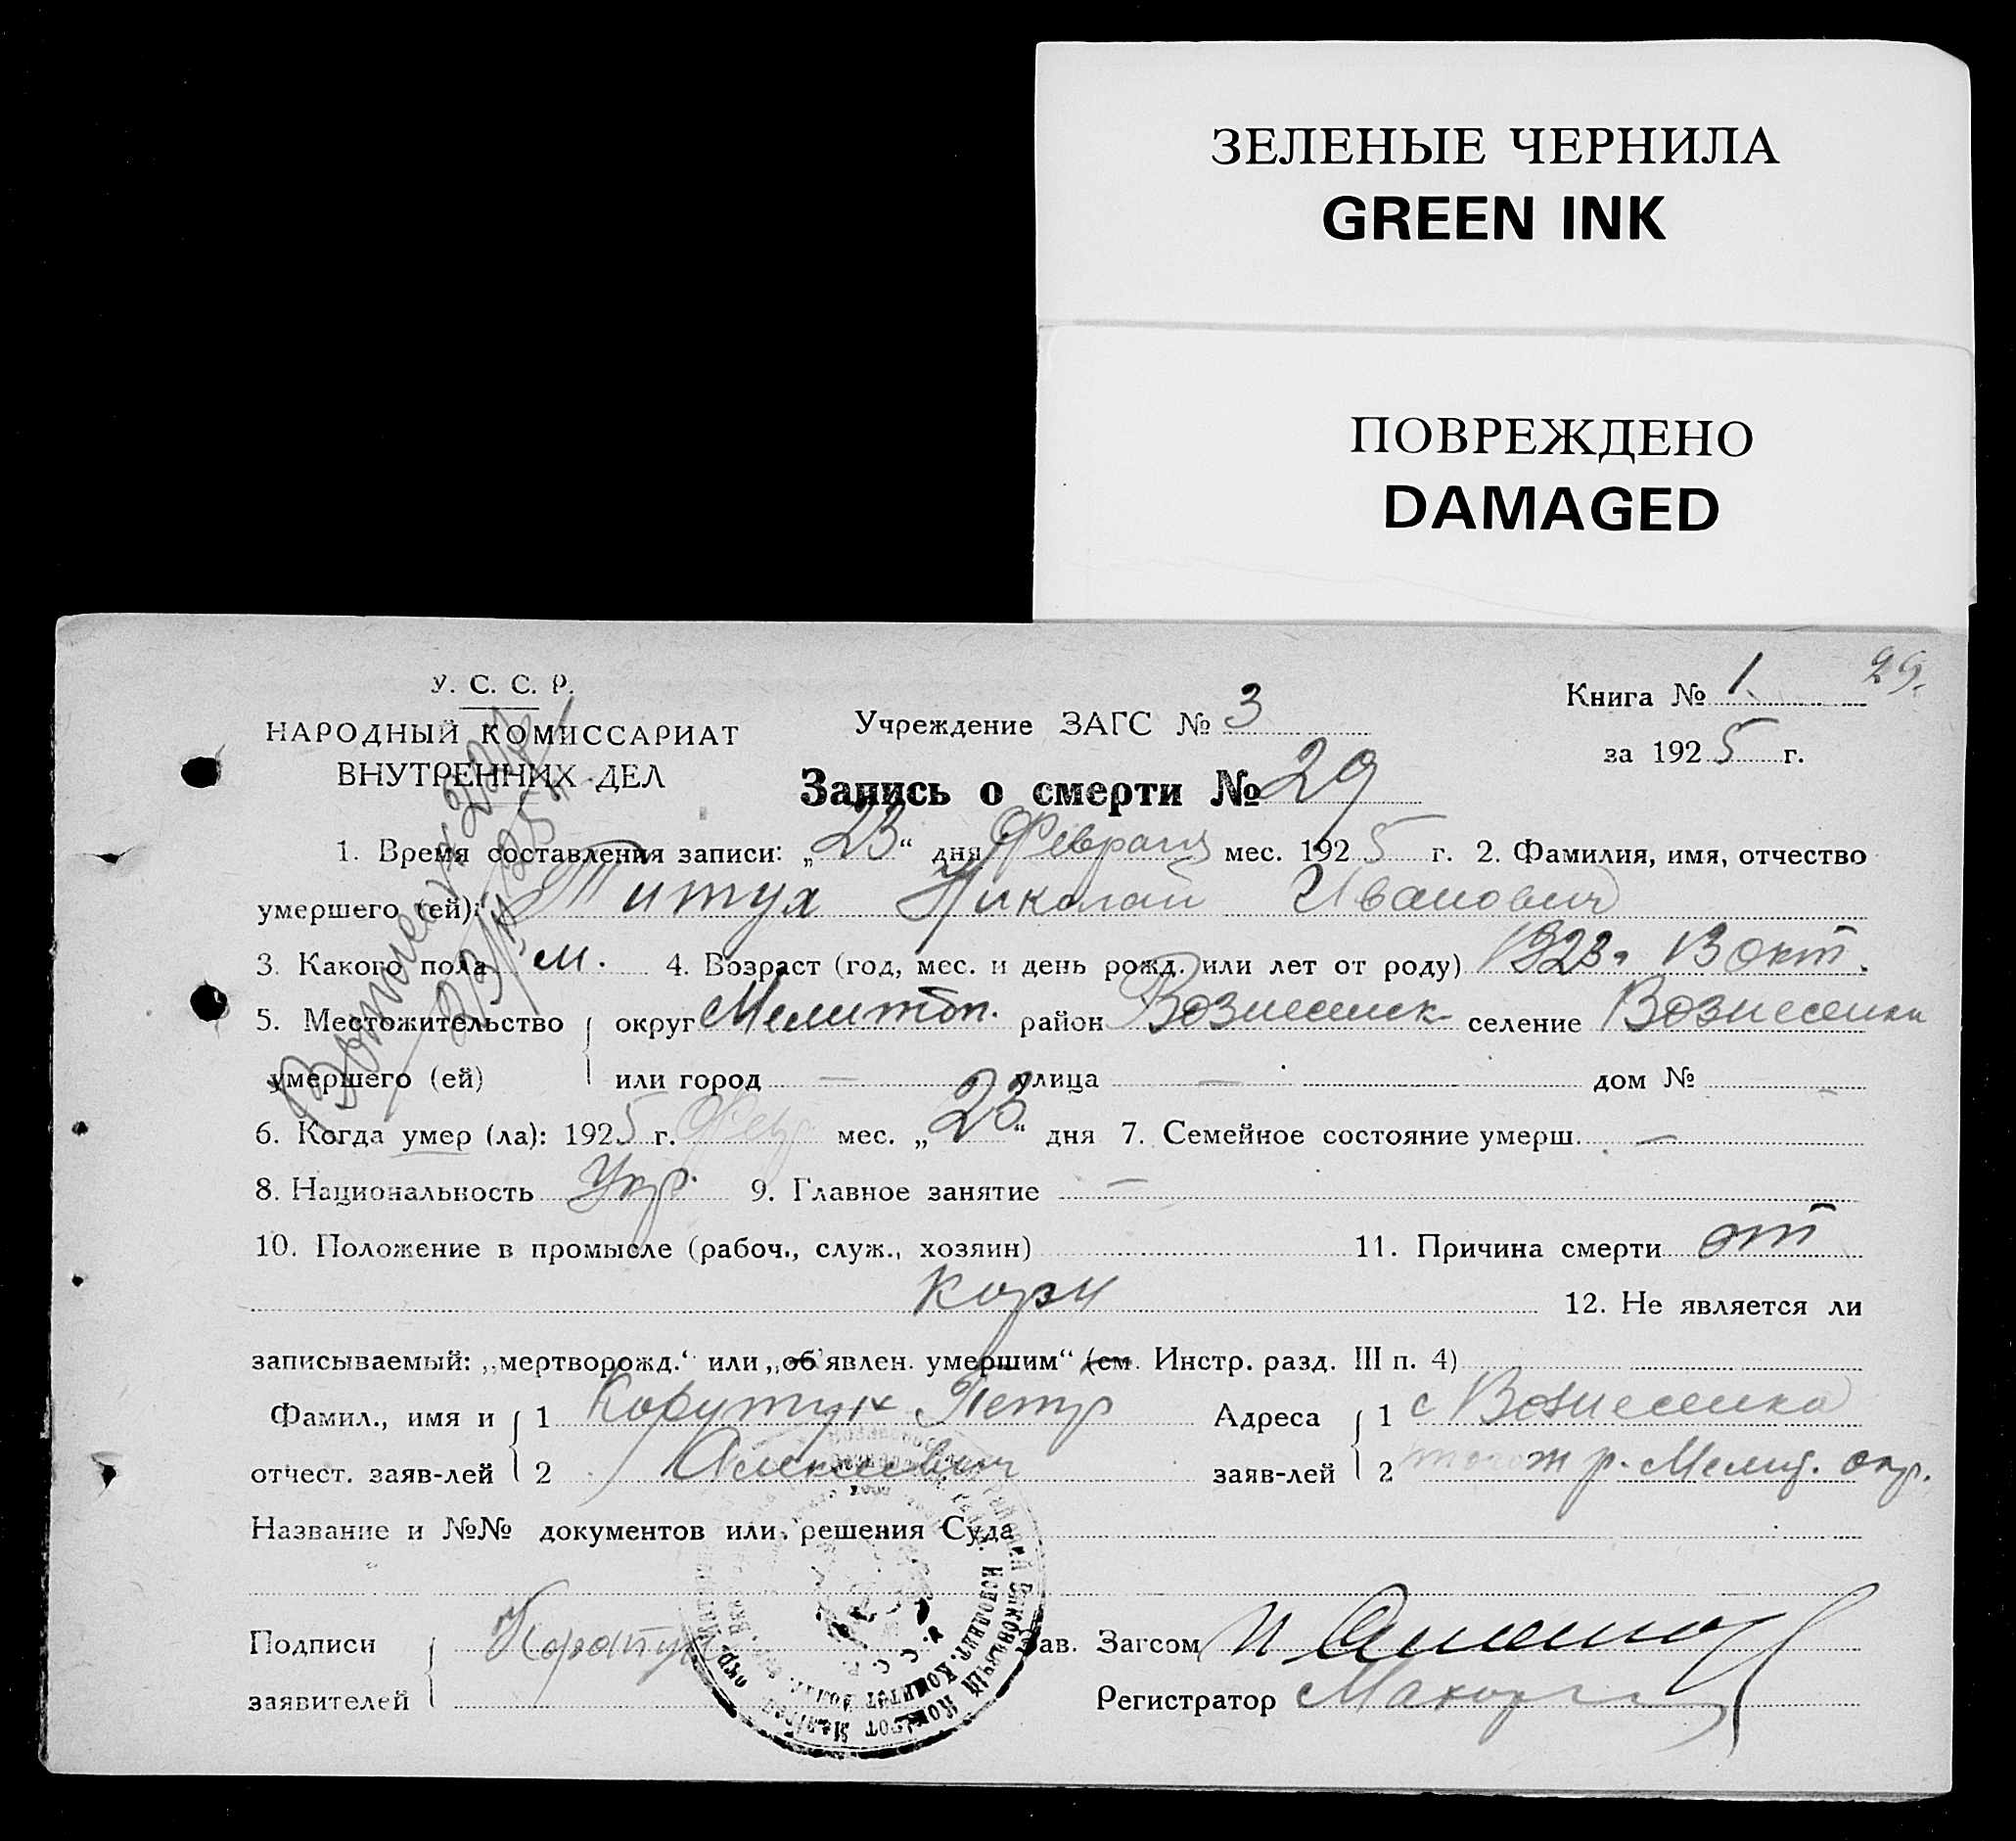 ЗЕЛЕНЫЕ ЧЕРНИЛА
GREEN INK
ПОВРЕЖДЕНО
DAMAGED
29.
У. С. С. Р.
НАРОДНЫЙ КОМИССАРИАТ
ВНУТРЕННИХ ДЕЛ
Учреждение ЗАГС № 3
Книга № 1
за 1925 г.
Запись о смерти № 29
1. Время составления записи: „23“ дня Февраля мес. 1925 г. 2. Фамилия, имя, отчество
умершего (ей): Титух Николай Иванович
3. Какого пола м. 4. Возраст (год, мес. и день рожд. или лет от роду) 1923г 13 окт.
5. Местожительство округ Мелитоп. район Вознесенск селение Вознесенки
умершего (ей) или город — улица — дом № —
6. Когда умер (ла): 1925 г. Фев мес. „23“ дня 7. Семейное состояние умерш. —
8. Национальность Укр. 9. Главное занятие —
10. Положение в промысле (рабоч., служ., хозяин) 11. Причина смерти от
кори 12. Не является ли
записываемый: „мертворожд.“ или „об'явлен. умершим“ (см. Инстр. разд. III п. 4)
Фамил., имя и 1 Петр Адреса 1 с Вознесенка
отчест. заяв-лей 2 Алексеевич заяв-лей 2 р. Мелит. окр.
Название и №№ документов или решения Суда
Подписи Зав. Загсом
заявителей Регистратор